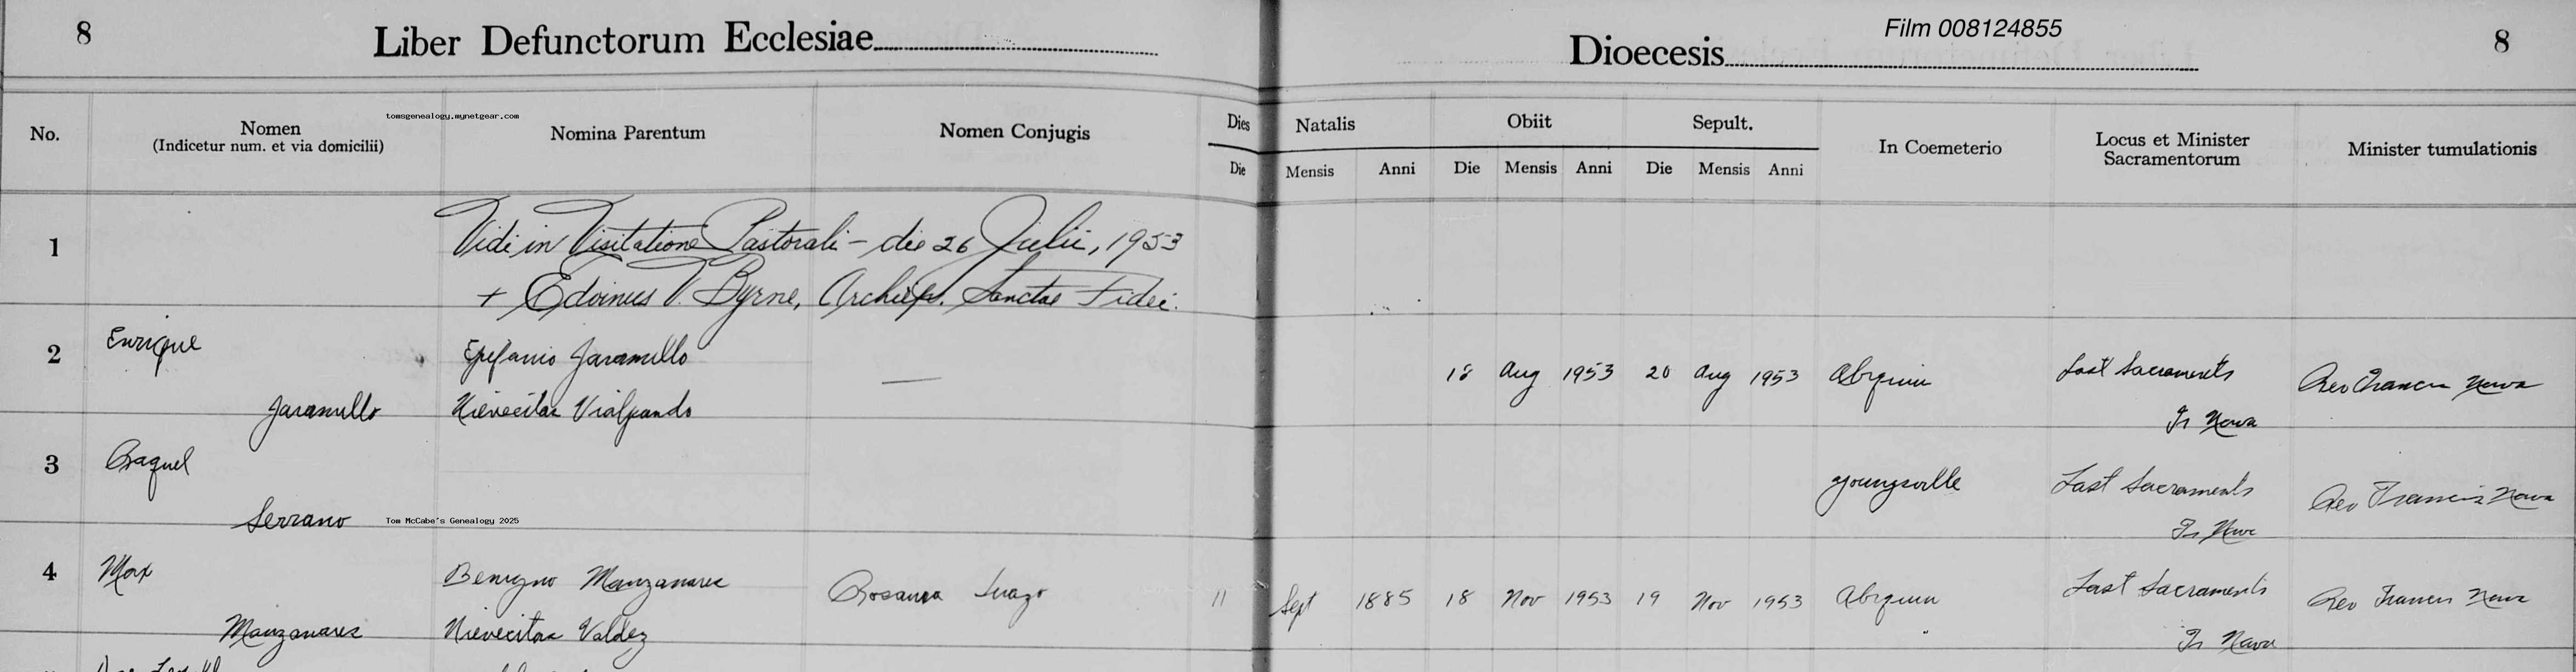 8
Liber Defunctorum Ecclesiae
Dioecesis
Film 008124855
8
tomsgenealogy.mynetgear.com
No.
Nomen
(Indicetur num. et via domicilii)
Nomina Parentum
Nomen Conjugis
Dies
Natalis
Obiit
Sepult.
In Coemeterio
Locus et Minister
Sacramentorum
Minister tumulationis
Die
Mensis
Anni
Die
Mensis
Anni
Die
Mensis
Anni
1
Vidi in Visitatione Pastorali - die 26 Julii, 1953
+ Edvinus V. Byrne, Archiep. Sanctae Fidei.
2
Enrique
Jaramillo
Epefanio Jaramillo
Nievecitas Vialpando
—
18 Aug 1953
20 Aug 1953
Abiquiu
Last Sacraments
Fr Nava
Rev Francis Nava
3
Raquel
Serrano
Tom McCabe's Genealogy 2025
Youngsville
Last Sacraments
Fr Nava
Rev Francis Nava
4
Max
Manzanares
Benigno Manzanares
Nievecitas Valdez
Rosaura Suazo
11 Sept 1885
18 Nov 1953
19 Nov 1953
Abiquiu
Last Sacraments
Fr Nava
Rev Francis Nava